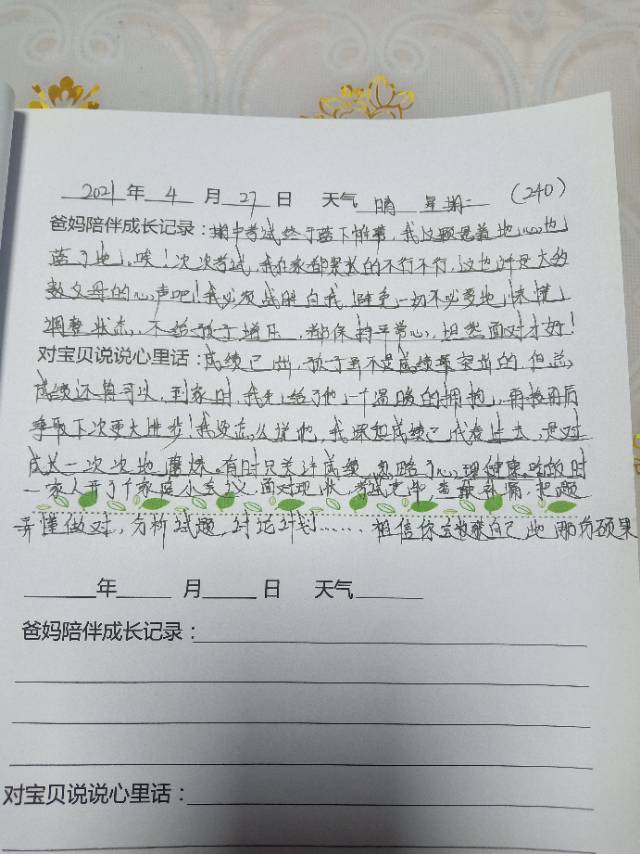 2021年 4 月 27 日 天气 晴 星期二 (240)
爸妈陪伴成长记录:期中考试终于落下帷幕,我这颗悬着地心也
落了地。唉!次次考试,我在家都紧张的不行不行,这也许是大多
数父母的心声吧!我必须战胜自我!避免一切不必要地
调整状态,不给孩子增压,都保持平常心,坦然面对才好!
对宝贝说说心里话:成绩已出,孩子虽不是成绩最突出的,但总
成绩还算可以,到家时,我先给了他一个温暖的拥抱,再接再厉
争取下次更大进步!我没怎么说他,我深知成绩已代表过去,是对
成长一次次地磨炼。有时只关注成绩,忽略了心理健康。吃饭时
一家人开了个家庭小会议,面对现状,考试完毕,查缺补漏,把题
弄懂做对,分析试题,讨论计划……相信你会收获自己地那份硕果
年 月 日 天气
爸妈陪伴成长记录:
对宝贝说说心里话: